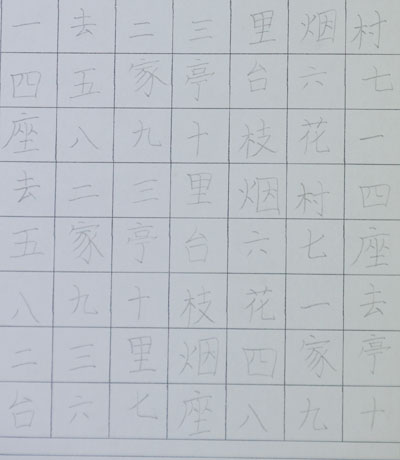 一去二三里烟村
四五家亭台六七
座八九十枝花一
去二三里烟村四
五家亭台六七座
八九十枝花一去
二三里烟四家亭
台六七座八九十